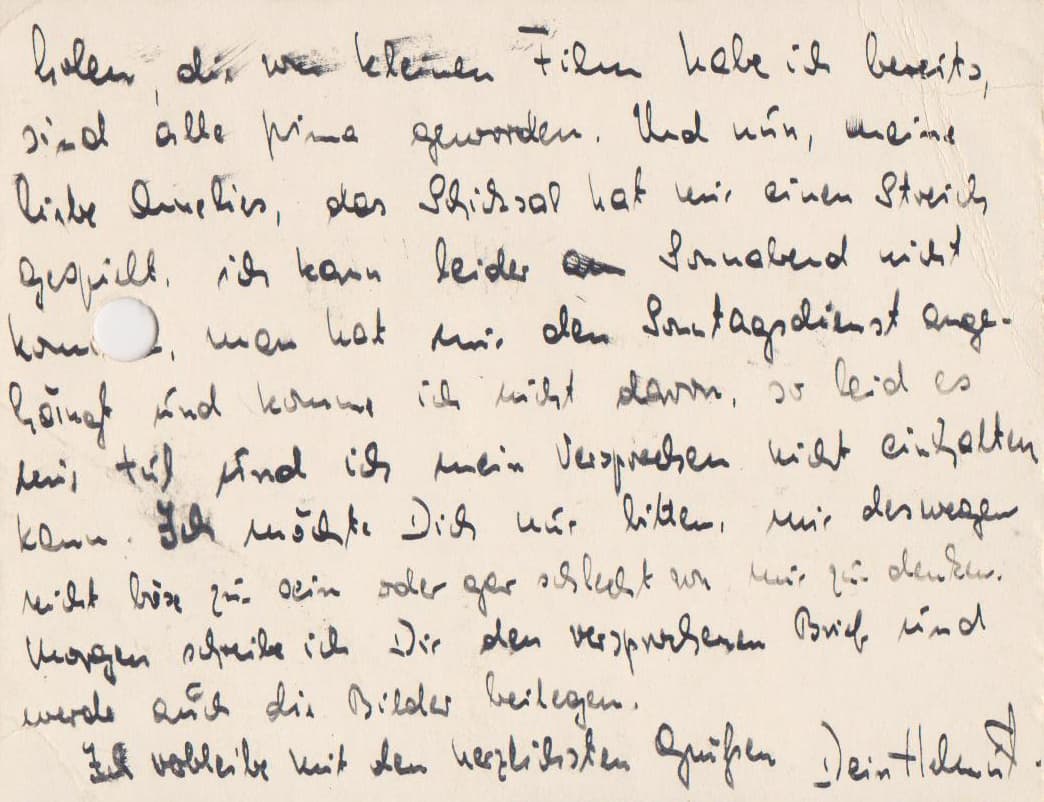 holen, die vom kleinen Film habe ich bereits,
sind alle prima geworden. Und nun, meine
liebe Annelies, das Schicksal hat mir einen Streich
gespielt, ich kann leider Sonnabend nicht
kommen, man hat mir den Sonntagsdienst ange-
hängt und komme ich nicht davon, so leid es
mir tut und ich mein Versprechen nicht einhalten
kann. Ich möchte Dich nur bitten, mir deswegen
nicht böse zu sein oder gar schlecht von mir zu denken.
Morgen schreibe ich Dir den versprochenen Brief und
werde auch die Bilder beilegen.
Ich verbleibe mit den herzlichsten Grüßen Dein Helmut.